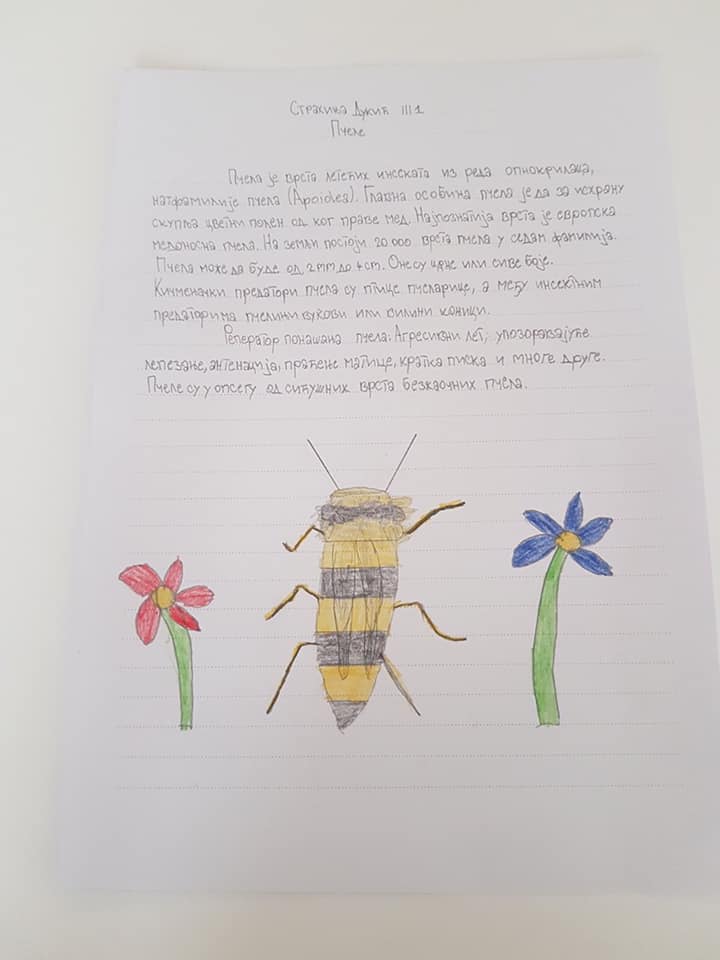 Страхиња Дукић III1
Пчеле
Пчела је врста летећих инсеката из реда опнокрилаца,
натфамилије пчела (Apoidea). Главна особина пчела је да за исхрану
скупља цветни полен од ког праве мед. Најпознатија врста је европска
медоносна пчела. На земљи постоји 20 000 врста пчела у седам фамилија.
Пчела може да буде од 2mm до 4cm. Оне су црне или сиве боје.
Кичмењачки предатори пчела су птице пчеларице, а међу инсектним
предаторима пчелињи вукови или вилини коњици.
Реператор понашања пчела: Агресивни лет, упозоравајуће
лепезање, антенација, праћење матице, кратка писка и многе друге.
Пчеле су у опсегу од сићушних врста безжаочних пчела.